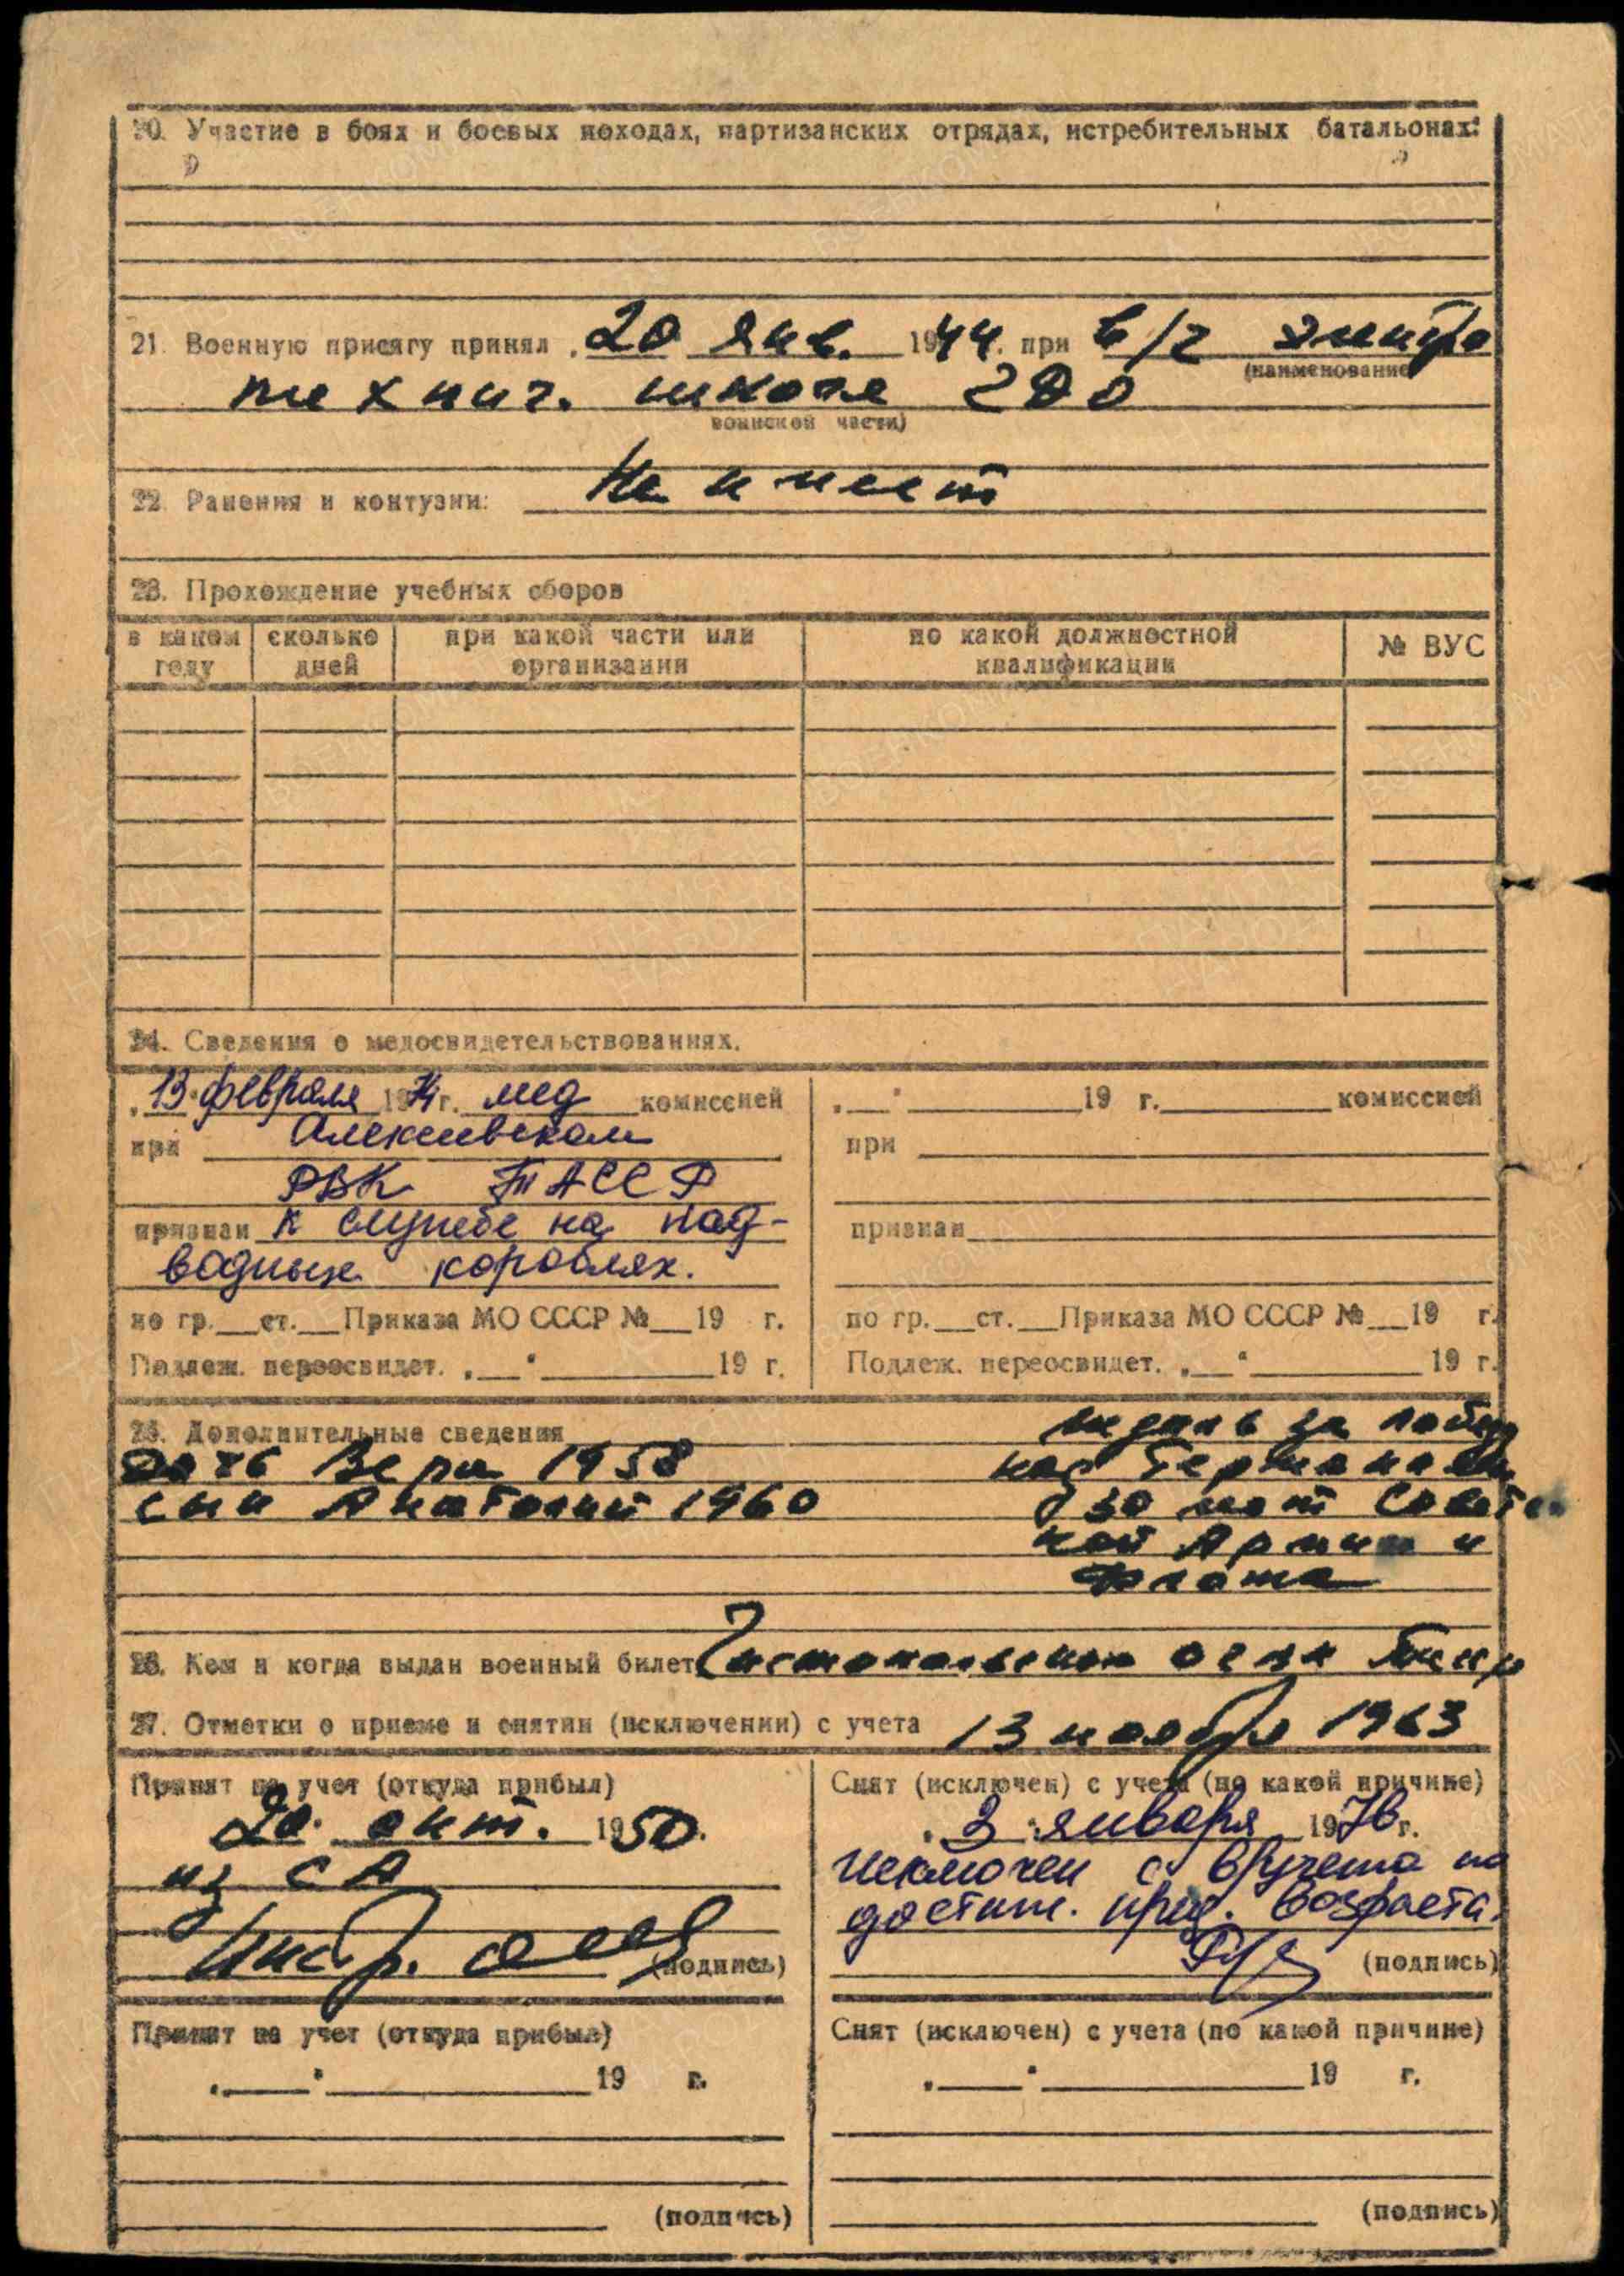 20. Участие в боях и боевых походах, партизанских отрядах, истребительных батальонах:
21. Военную присягу принял 20 янв. 1944 г. при в/ч электро
(наименование
технич. школе
воинской части)
22. Ранения и контузии: Не имеет
23. Прохождение учебных сборов
в каком году | сколько дней | при какой части или организации | по какой должностной квалификации | № ВУС
24. Сведения о медосвидетельствованиях.
„13" февраля 1974 г. мед комиссией
при Алексеевском
РВК ТАССР
признан к службе на над-
водных кораблях.
по гр.__ст.__Приказа МО СССР №__19 г.
Подлеж. переосвидет. „__"______19 г.
„__"______19 г.______комиссией
при
признан
по гр.__ст.__Приказа МО СССР №__19 г.
Подлеж. переосвидет. „__"______19 г.
25. Дополнительные сведения
дочь Вера 1958
сын Анатолий 1960
медаль за победу
над Германией
и 30 лет Советс
кой Армии и
Флота
26. Кем и когда выдан военный билет Чистопольским
27. Отметки о приеме и снятии (исключении) с учета 13 ноября 1963
Принят на учет (откуда прибыл)
20 окт. 1950 г.
из СА
(подпись)
Снят (исключен) с учета (по какой причине)
„3" января 1976 г.
исключен с в/учета по
достиж. пред. возраста.
(подпись)
Принят на учет (откуда прибыл)
„__"______19 г.
(подпись)
Снят (исключен) с учета (по какой причине)
„__"______19 г.
(подпись)